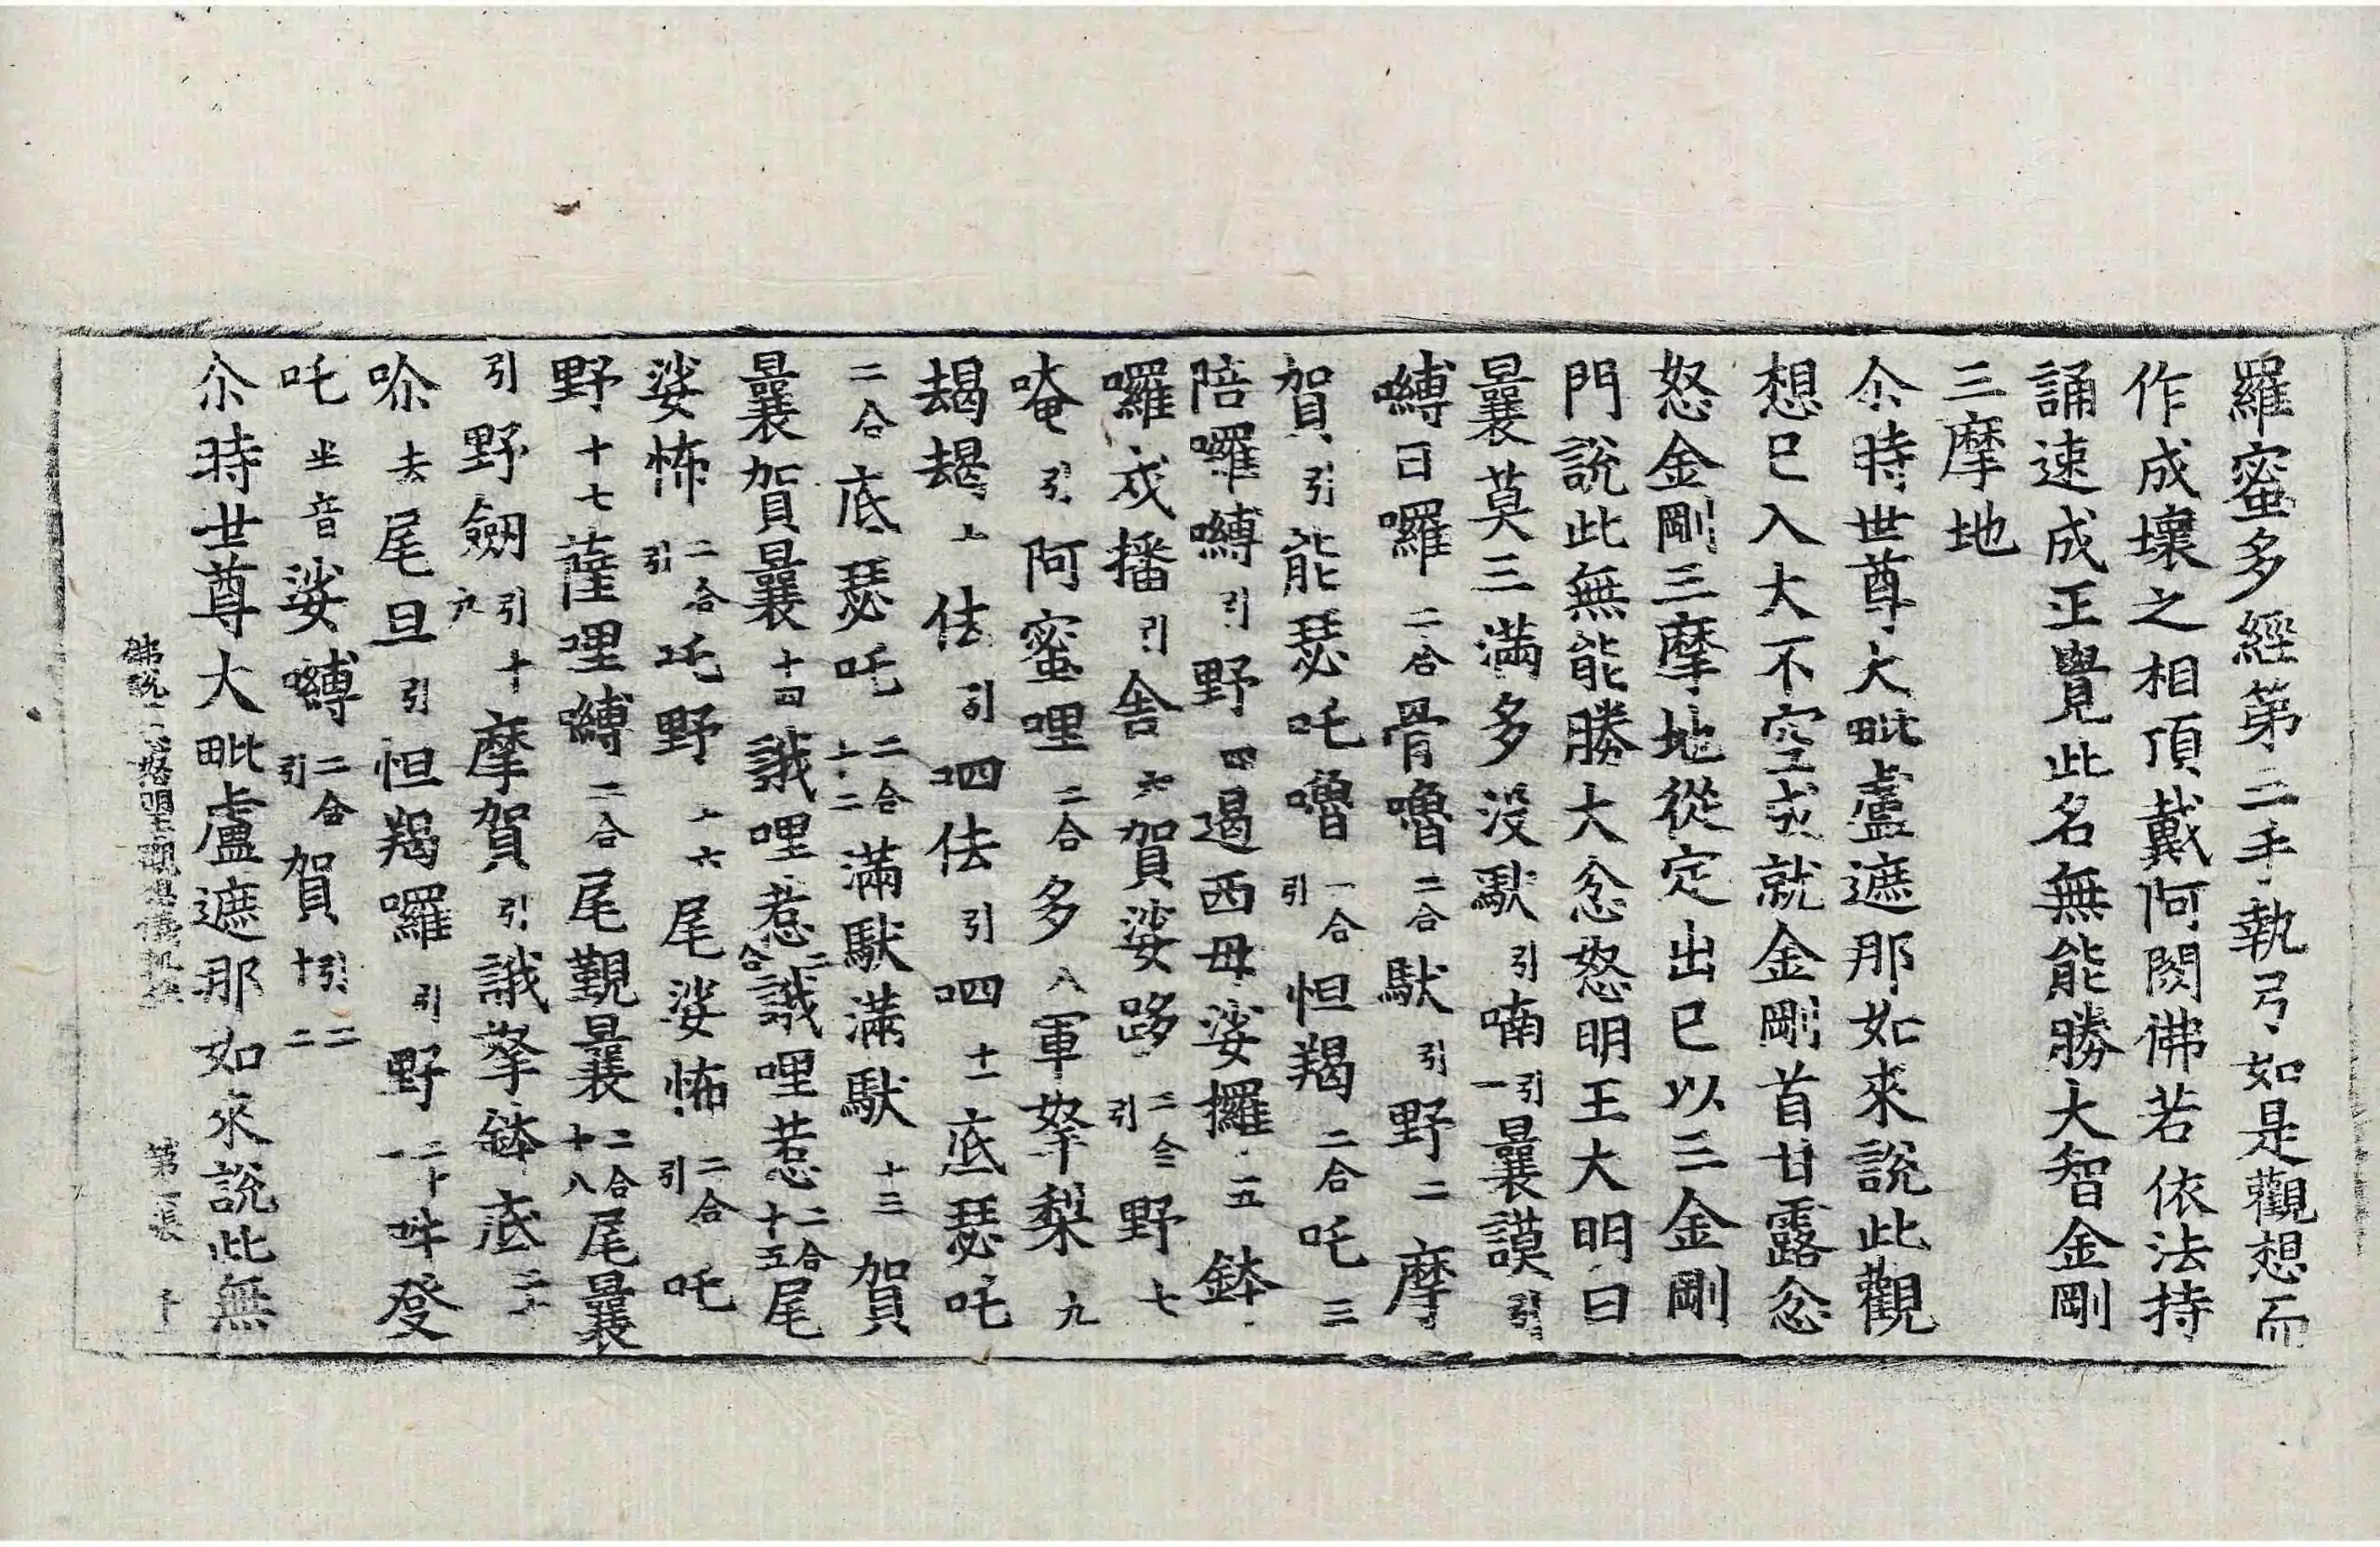 羅蜜多經第二手執弓如是觀想而
作成壞之相頂戴阿閦佛若依法持
誦速成正覺此名無能勝大智金剛
三摩地
尒時世尊大毗盧遮那如來說此觀
想已入大不空成就金剛首甘露忿
怒金剛三摩地從定出已以三金剛
門說此無能勝大忿怒明王大明曰
曩莫三滿多没馱引喃引一曩謨引
嚩日囉二合骨嚕二合馱引野二摩
賀引能瑟吒嚕二合引怛羯二合吒三
陪囉嚩引野四遏西母娑攞五鉢
囉戍播引舎六賀娑跢二合引野七
唵引阿蜜哩二合多八軍拏梨九
朅朅上佉引呬佉引呬十一底瑟吒
二合底瑟吒二合十二滿馱滿馱十三賀
曩賀曩十四誐哩惹二合誐哩惹二合十五尾
娑怖二合引吒野十六尾娑怖二合引吒
野十七薩哩嚩二合尾覲曩二合十八尾曩
引野劒引十九摩賀引誐拏鉢底二十
𠷀去尾旦引怛羯囉引野二十一吽癹
吒半音娑嚩二合引賀引二十二
尒時世尊大毗盧遮那如來說此無
第二張